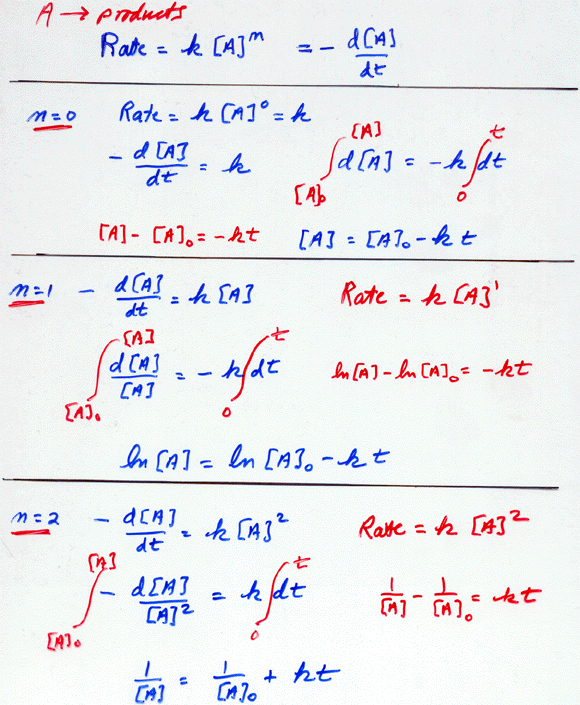 A → products
Rate = k [A]^m = - d[A]/dt
n=0 Rate = k [A]^0 = k
- d[A]/dt = k ∫_{[A]_0}^{[A]} d[A] = -k ∫_0^t dt
[A] - [A]_0 = -kt [A] = [A]_0 - kt
n=1 - d[A]/dt = k [A] Rate = k [A]^1
∫_{[A]_0}^{[A]} d[A]/[A] = -k ∫_0^t dt ln[A] - ln[A]_0 = -kt
ln [A] = ln [A]_0 - kt
n=2 - d[A]/dt = k [A]^2 Rate = k [A]^2
∫_{[A]_0}^{[A]} - d[A]/[A]^2 = k ∫_0^t dt 1/[A] - 1/[A]_0 = kt
1/[A] = 1/[A]_0 + kt